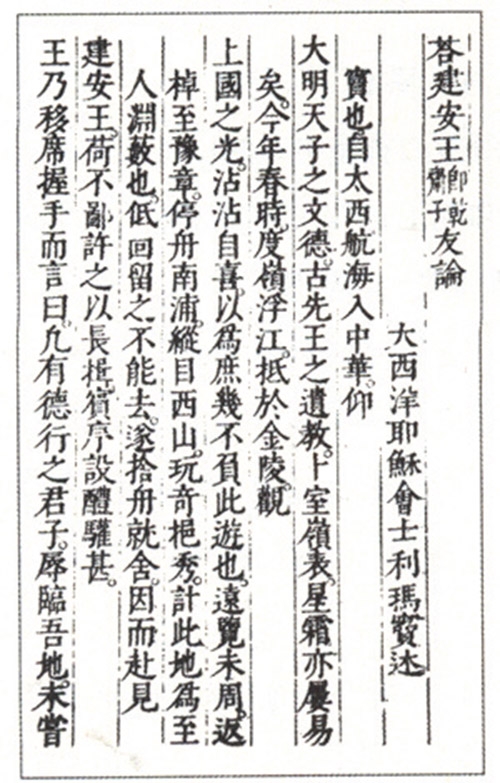 荅建安王即乾齋子友論
大西洋耶穌會士利瑪竇述
竇也自太西航海入中華。仰
大明天子之文德。古先王之遺教。卜室嶺表。星霜亦屢易
矣。今年春時。度嶺浮江。抵於金陵。觀
上國之光。沾沾自喜。以爲庶幾不負此遊也。遠覽未周。返
棹至豫章。停舟南浦。縱目西山。玩奇挹秀。計此地爲至
人淵藪也。低回留之不能去。遂捨舟就舍。因而赴見
建安王。荷不鄙。許之以長揖。賓序設醴驩甚。
王乃移席握手而言曰。凡有德行之君子。辱臨吾地。未嘗